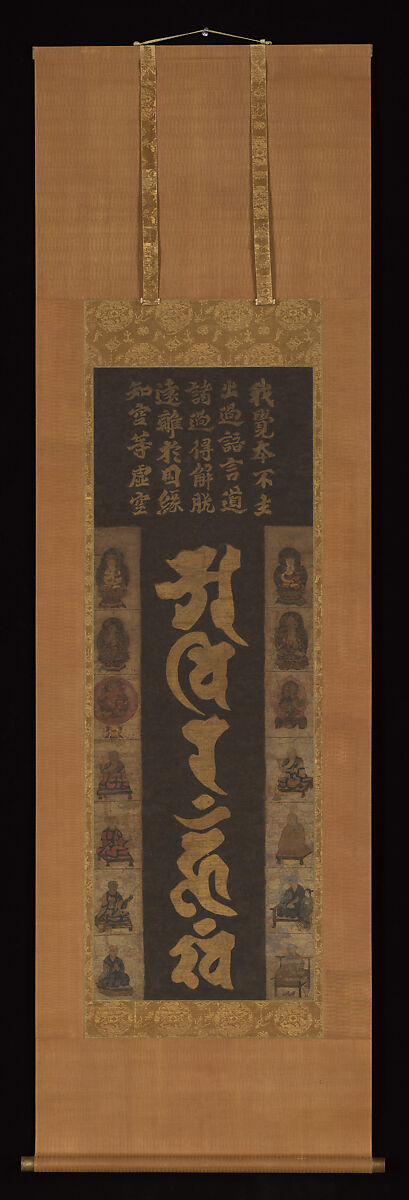 我覺本不生
出過語言道
諸過得解脫
遠離於因緣
知空等虛空
𑖀𑖪𑖰𑖨𑖮𑖳𑖽𑖏𑖽